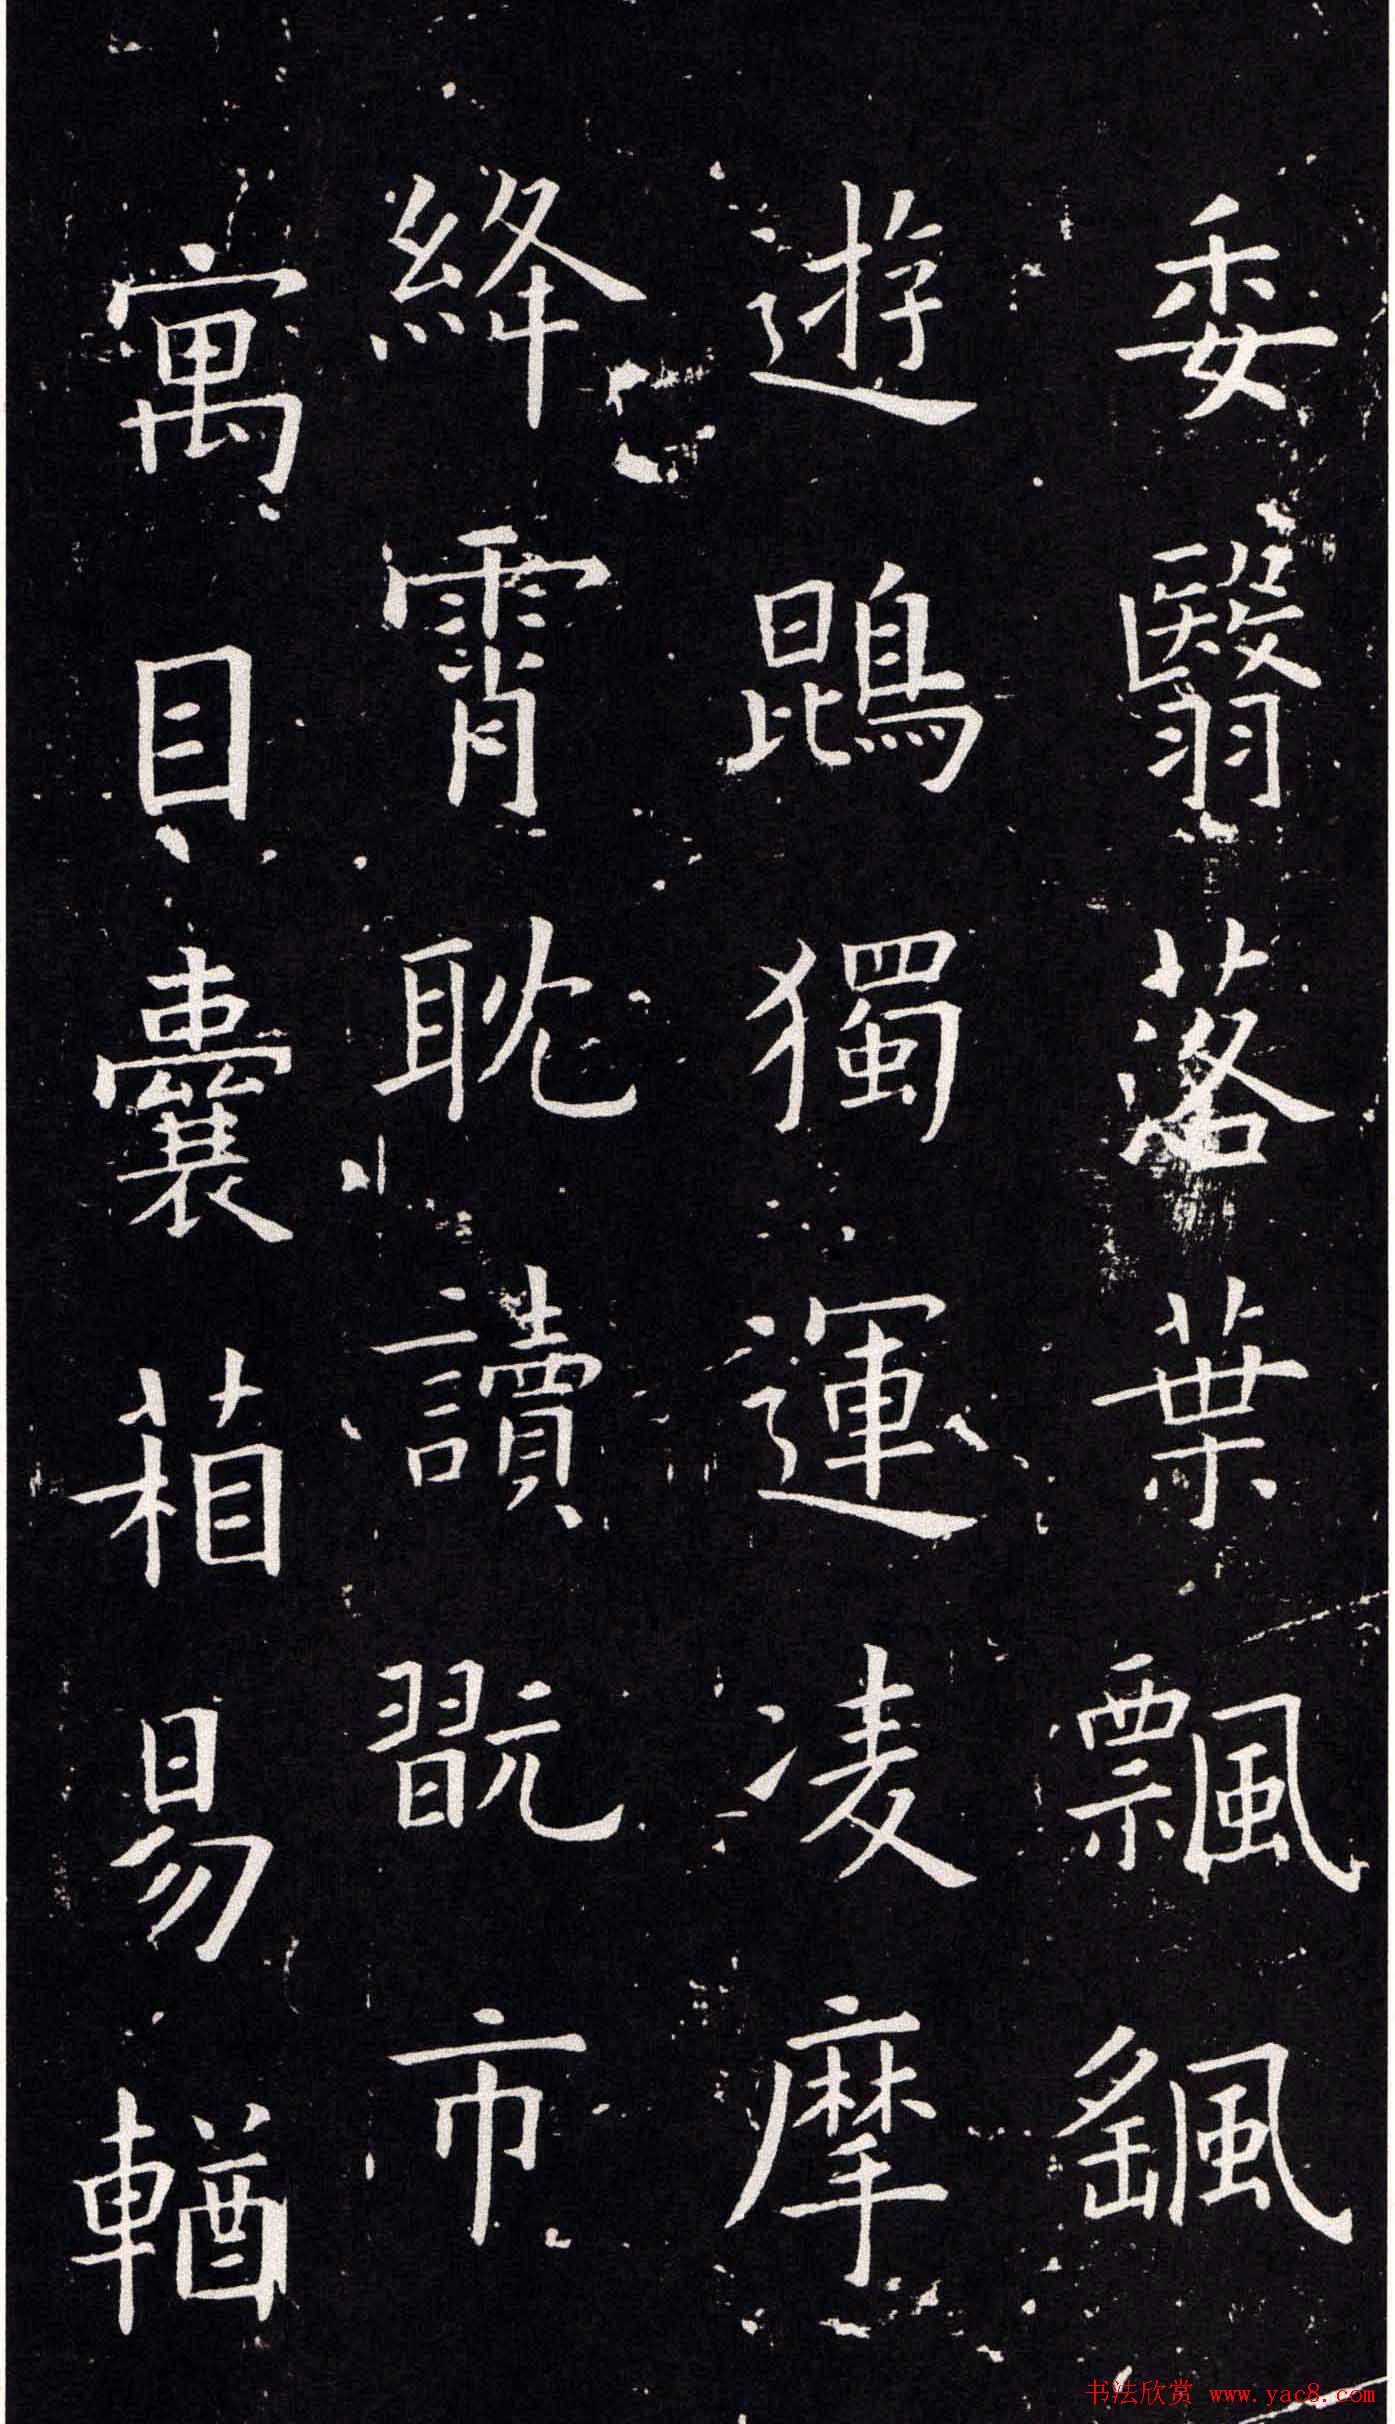 委翳落葉飄颻
遊鵾獨運凌摩
絳霄耽讀翫市
寓目囊葙易輶
书法欣赏 www.yac8.com